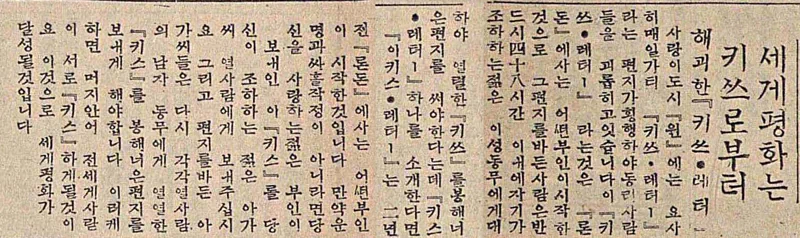 세게평화는
키쓰로부터
해괴한『키쓰•레터』
사랑이도시『원』에는 요사
히매일가티 『키쓰•레터ー』
라는 편지가횡행하야동리사람
들을 괴롭히고잇습니다이『키
쓰•레터ー』 라는것은 『론
돈』에사는 어떤부인이시작한
것으로 그편지를바든사람은반
드시四十八시간 이내에자기가
조하하는젊은 이성동무에게대
하야 열렬한『키쓰』를봉해너
은편지를 써야한다는데『키스
•레터ー』하나를 소개한다면
『이키스•레터ー』는 二년
전『론돈』에사는 어떤부인
이 시작한것입니다 만약운
명과싸홀작정이 아니라면당
신을 사랑하는젊은 부인이
보내인 이『키스』를 당
신이 조하하는 젊은 아가
씨 열사람에게 보내주십시
요 그리고 편지를바든 아
가씨들은 다시 각각열사람
의 남자 동무에게 열열한
『키스』를 봉해너은편지를
보내게 해야합니다 이러케
하면 머지안어 전세게사람
이 서로『키스』하게될것이
요 이것으로 세게평화가
달성될것입니다